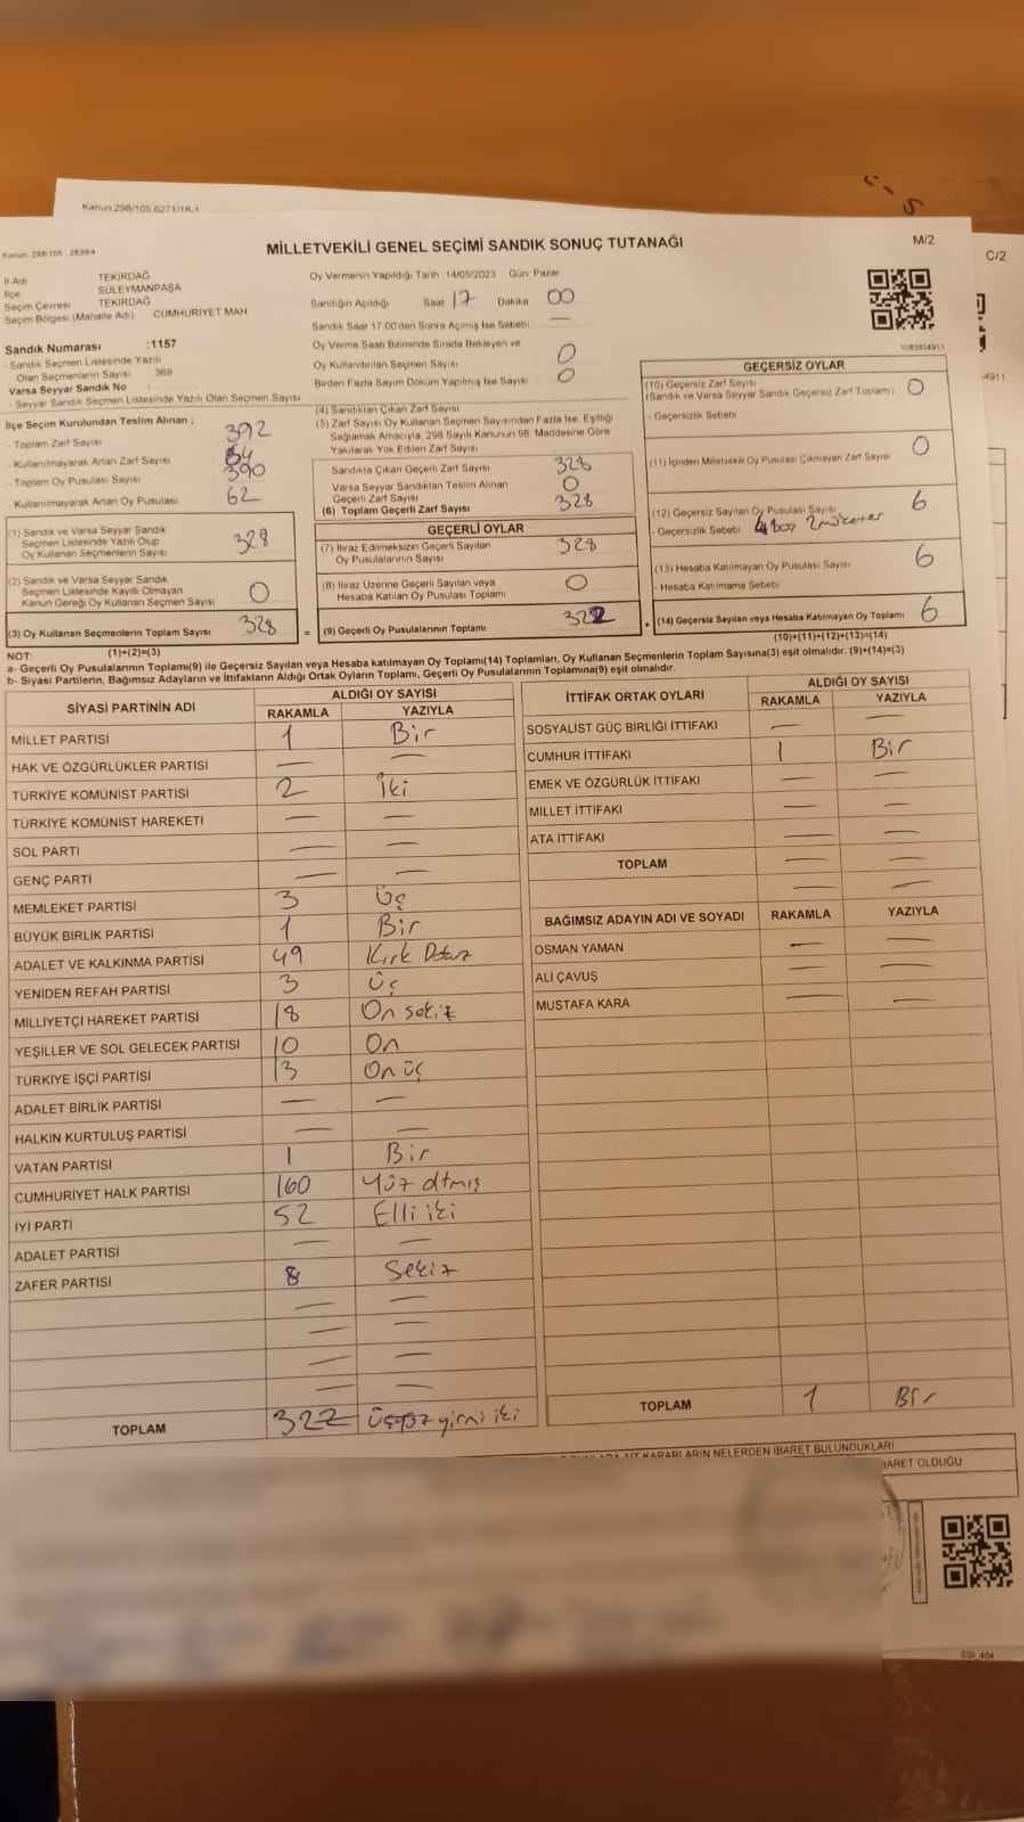 Kanun 298/105
MİLLETVEKİLİ GENEL SEÇİMİ SANDIK SONUÇ TUTANAĞI
M/2
C/2
İl Adı TEKİRDAĞ
İlçe SÜLEYMANPAŞA
Seçim Çevresi TEKİRDAĞ
Seçim Bölgesi (Mahalle Adı) CUMHURİYET MAH
Oy Vermenin Yapıldığı Tarih :14/05/2023 Gün: Pazar
Sandığın Açıldığı Saat 17 Dakika 00
Sandık Saat 17.00'den Sonra Açılmış İse Sebebi —
Oy Verme Saati Bitiminde Sırada Bekleyen ve
Oy Kullandırılan Seçmen Sayısı 0
Birden Fazla Sayım Döküm Yapılmış İse Sayısı 0
Sandık Numarası :1157
- Sandık Seçmen Listesinde Yazılı
Olan Seçmenlerin Sayısı 369
Varsa Seyyar Sandık No :
- Seyyar Sandık Seçmen Listesinde Yazılı Olan Seçmen Sayısı
İlçe Seçim Kurulundan Teslim Alınan ;
- Toplam Zarf Sayısı 392
- Kullanılmayarak Artan Zarf Sayısı 64
- Toplam Oy Pusulası Sayısı 390
- Kullanılmayarak Artan Oy Pusulası 62
(1) Sandık ve Varsa Seyyar Sandık
Seçmen Listesinde Yazılı Olup
Oy Kullanan Seçmenlerin Sayısı 328
(2) Sandık ve Varsa Seyyar Sandık
Seçmen Listesinde Kayıtlı Olmayan
Kanun Gereği Oy Kullanan Seçmen Sayısı 0
(3) Oy Kullanan Seçmenlerin Toplam Sayısı 328
(1)+(2)=(3)
(4) Sandıktan Çıkan Zarf Sayısı
(5) Zarf Sayısı Oy Kullanan Seçmen Sayısından Fazla İse, Eşitliği
Sağlamak Amacıyla, 298 Sayılı Kanunun 98. Maddesine Göre
Yakılarak Yok Edilen Zarf Sayısı
Sandıkta Çıkan Geçerli Zarf Sayısı 328
Varsa Seyyar Sandıktan Teslim Alınan
Geçerli Zarf Sayısı 0
(6) Toplam Geçerli Zarf Sayısı 328
GEÇERLİ OYLAR
(7) İtiraz Edilmeksizin Geçerli Sayılan
Oy Pusulalarının Sayısı 328
(8) İtiraz Üzerine Geçerli Sayılan veya
Hesaba Katılan Oy Pusulası Toplamı 0
= (9) Geçerli Oy Pusulalarının Toplamı 322
GEÇERSİZ OYLAR
(10) Geçersiz Zarf Sayısı
(Sandık ve Varsa Seyyar Sandık Geçersiz Zarf Toplamı) 0
- Geçersizlik Sebebi :
(11) İçinden Milletvekili Oy Pusulası Çıkmayan Zarf Sayısı 0
(12) Geçersiz Sayılan Oy Pusulası Sayısı 6
- Geçersizlik Sebebi : 4 boş
(13) Hesaba Katılmayan Oy Pusulası Sayısı 6
- Hesaba Katılmama Sebebi :
+ (14) Geçersiz Sayılan veya Hesaba Katılmayan Oy Toplamı 6
(10)+(11)+(12)+(13)=(14)
NOT:
a- Geçerli Oy Pusulalarının Toplamı(9) ile Geçersiz Sayılan veya Hesaba katılmayan Oy Toplamı(14) Toplamları, Oy Kullanan Seçmenlerin Toplam Sayısına(3) eşit olmalıdır. (9)+(14)=(3)
b- Siyasi Partilerin, Bağımsız Adayların ve İttifakların Aldığı Ortak Oyların Toplamı, Geçerli Oy Pusulalarının Toplamına(9) eşit olmalıdır.
SİYASİ PARTİNİN ADI ALDIĞI OY SAYISI
RAKAMLA YAZIYLA
MİLLET PARTİSİ 1 Bir
HAK VE ÖZGÜRLÜKLER PARTİSİ — —
TÜRKİYE KOMÜNİST PARTİSİ 2 İki
TÜRKİYE KOMÜNİST HAREKETİ — —
SOL PARTİ — —
GENÇ PARTİ — —
MEMLEKET PARTİSİ 3 Üç
BÜYÜK BİRLİK PARTİSİ 1 Bir
ADALET VE KALKINMA PARTİSİ 49 Kırk Dokuz
YENİDEN REFAH PARTİSİ 3 Üç
MİLLİYETÇİ HAREKET PARTİSİ 18 On sekiz
YEŞİLLER VE SOL GELECEK PARTİSİ 10 On
TÜRKİYE İŞÇİ PARTİSİ 13 On üç
ADALET BİRLİK PARTİSİ — —
HALKIN KURTULUŞ PARTİSİ — —
VATAN PARTİSİ 1 Bir
CUMHURİYET HALK PARTİSİ 160 Yüz altmış
İYİ PARTİ 52 Elli iki
ADALET PARTİSİ — —
ZAFER PARTİSİ 8 Sekiz
— —
— —
— —
— —
TOPLAM 322 Üçyüz yirmi iki
İTTİFAK ORTAK OYLARI ALDIĞI OY SAYISI
RAKAMLA YAZIYLA
SOSYALİST GÜÇ BİRLİĞİ İTTİFAKI — —
CUMHUR İTTİFAKI 1 Bir
EMEK VE ÖZGÜRLÜK İTTİFAKI — —
MİLLET İTTİFAKI — —
ATA İTTİFAKI — —
TOPLAM — —
— —
BAĞIMSIZ ADAYIN ADI VE SOYADI RAKAMLA YAZIYLA
OSMAN YAMAN — —
ALİ ÇAVUŞ — —
MUSTAFA KARA — —
TOPLAM 1 Bir
KARARLARIN NELERDEN İBARET BULUNDUKLARI
İBARET OLDUĞU